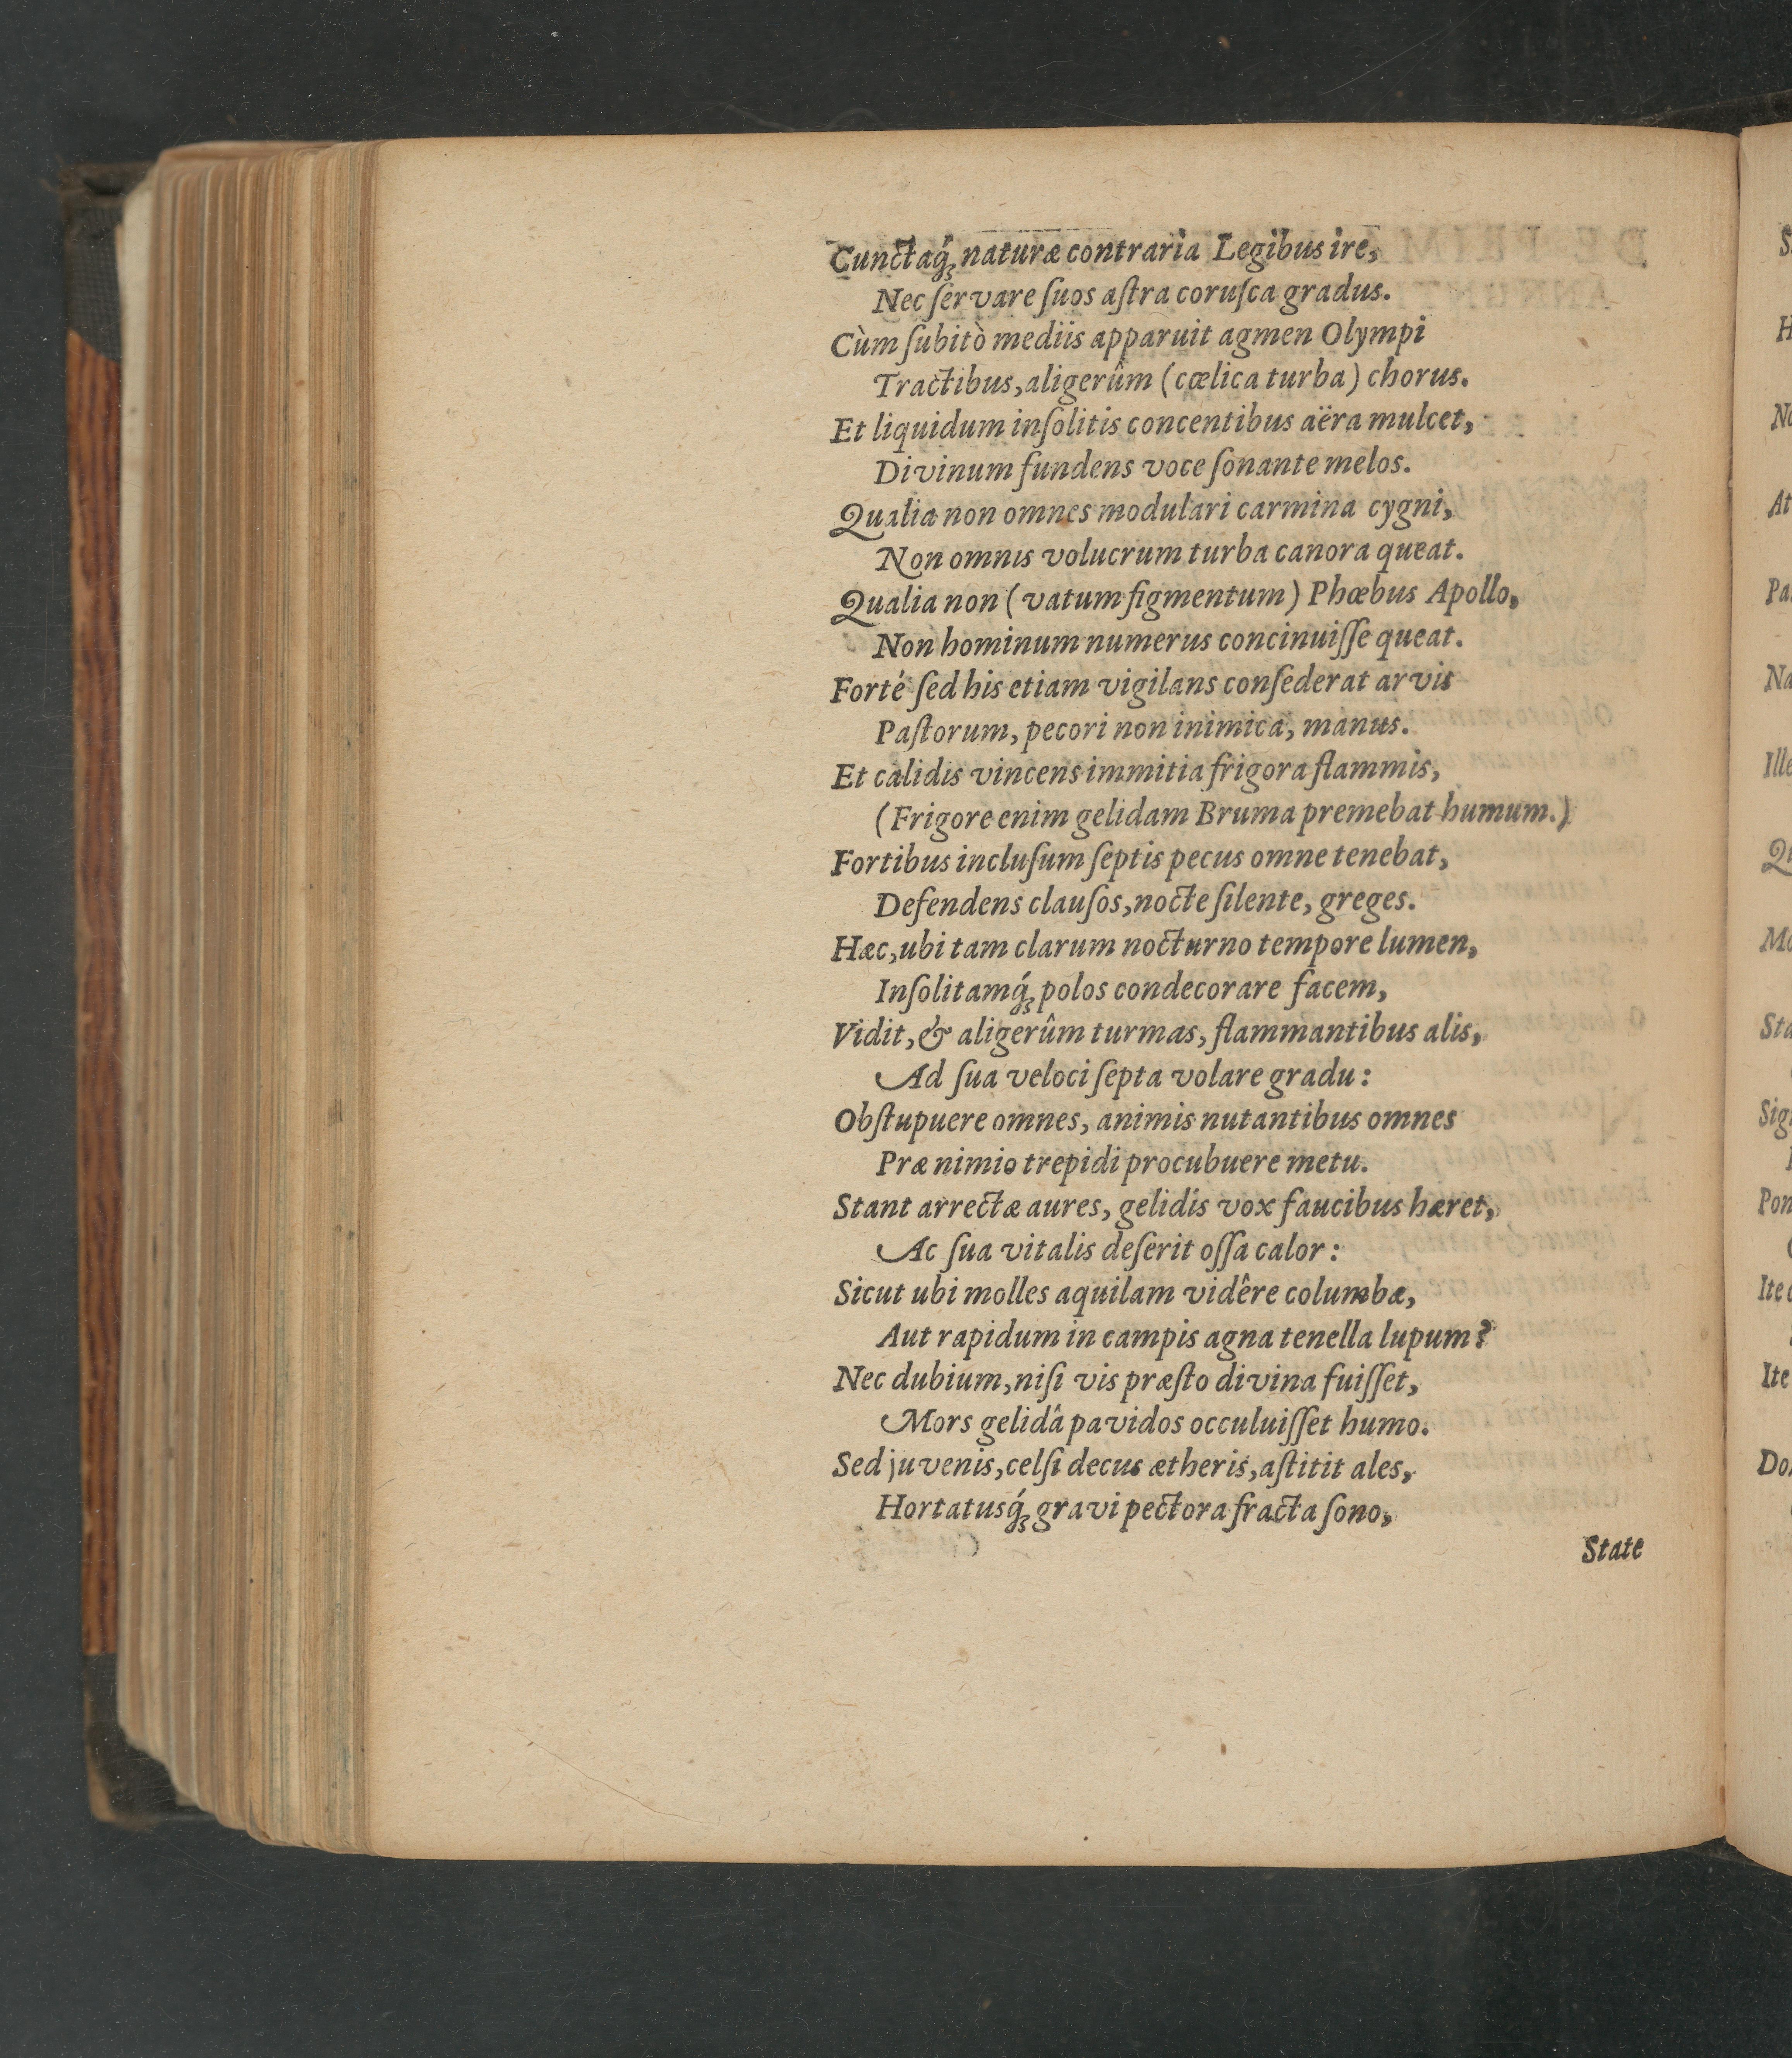 Cunctaq́ꝫ naturæ contraria Legibus ire,
Nec ſervare ſuos aſtra coruſca gradus.
Cùm ſubitò mediis apparuit agmen Olympi
Tractibus, aligerûm (cœlica turba) chorus.
Et liquidum inſolitis concentibus aëra mulcet,
Divinum fundens voce ſonante melos.
Qualia non omnes modulari carmina cygni,
Non omnis volucrum turba canora queat.
Qualia non (vatum figmentum) Phœbus Apollo,
Non hominum numerus concinuiſſe queat.
Forté ſed his etiam vigilans conſederat arvis
Paſtorum, pecori non inimica, manus.
Et calidis vincens immitia frigora flammis,
(Frigore enim gelidam Bruma premebat humum.)
Fortibus incluſum ſeptis pecus omne tenebat,
Defendens clauſos, nocte ſilente, greges.
Hæc, ubi tam clarum nocturno tempore lumen,
Inſolitamq́ꝫ polos condecorare facem,
Vidit, & aligerûm turmas, flammantibus alis,
Ad ſua veloci ſepta volare gradu:
Obſtupuere omnes, animis nutantibus omnes
Præ nimio trepidi procubuere metu.
Stant arrectæ aures, gelidis vox faucibus hæret,
Ac ſua vitalis deſerit oſſa calor:
Sicut ubi molles aquilam vidêre columbæ,
Aut rapidum in campis agna tenella lupum?
Nec dubium, niſi vis præſto divina fuiſſet,
Mors gelidâ pavidos occuluiſſet humo.
Sed juvenis, celſi decus ætheris, aſtitit ales,
Hortatusq́ꝫ gravi pectora fracta ſono,
State